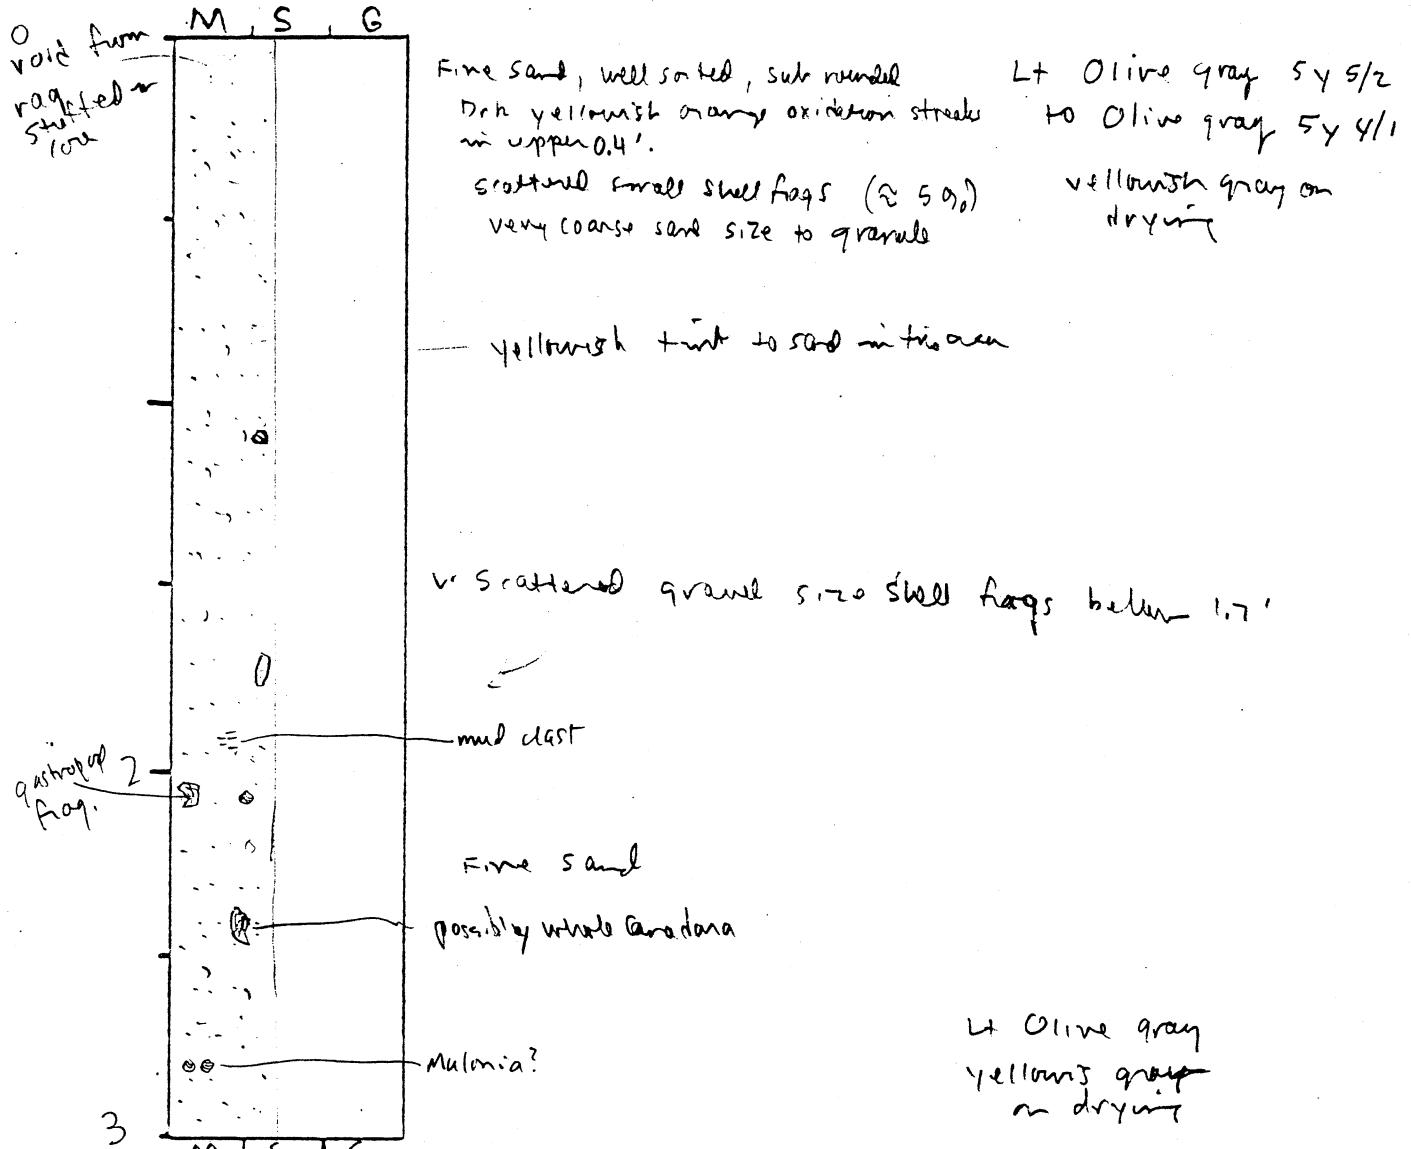 M S G
0
void from
rag
stuffed in
core
Fine sand, well sorted, sub rounded
Drk yellowish orange oxidation streaks
in upper 0.4'.
scattered small shell frags (≈ 5%)
very coarse sand size to granule
Lt Olive gray 5Y 5/2
to Olive gray 5Y 4/1
yellowish gray on
drying
yellowish tint to sand in this area
v. scattered gravel size shell frags below 1.7'
mud clast
gastropod
frag.
2
Fine sand
possibly whole
Mulonia?
Lt Olive gray
yellowis gray
on drying
3
M S G